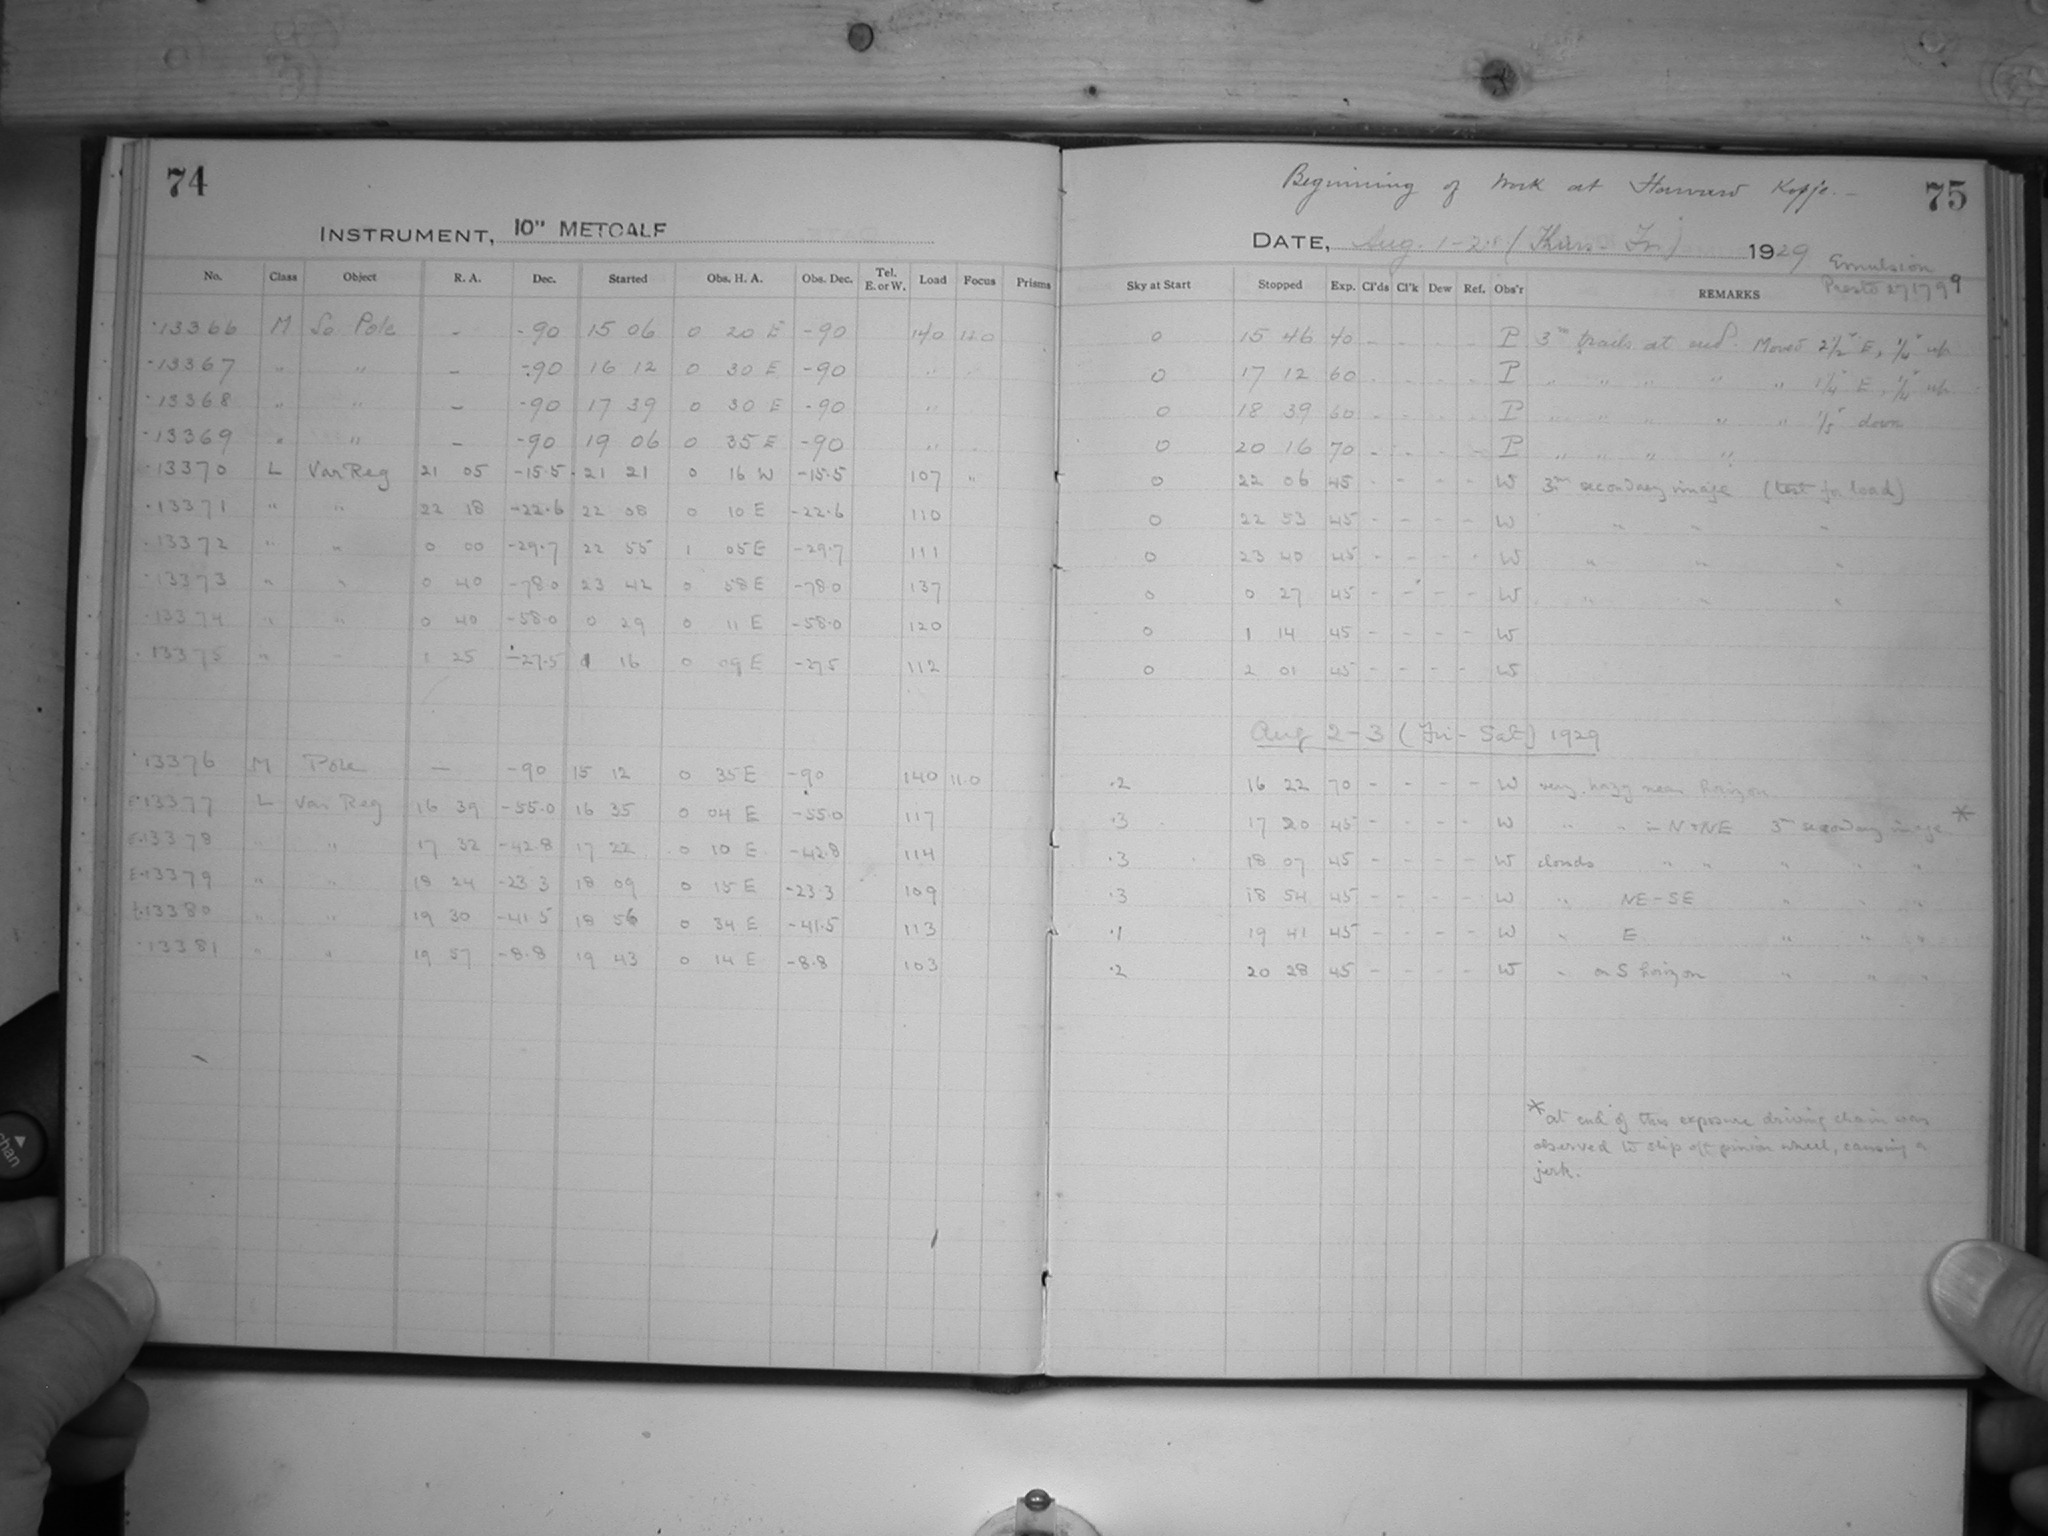 74
INSTRUMENT, 10" METCALF
No. Class Object R. A. Dec. Started Obs. H. A. Obs. Dec. Tel. E. or W. Load Focus Prisms
13366 M So Pole - -90 15 06 0 20 E -90 140 11.0
13367 " " - -90 16 12 0 30 E -90 "
13368 " " - -90 17 39 0 30 E -90 "
13369 " " - -90 19 06 0 35 E -90 "
13370 L Var Reg 21 05 -15.5 21 21 0 16 W -15.5 107 "
13371 " " 22 18 -22.6 22 08 0 10 E -22.6 110
13372 " " 0 00 -29.7 22 55 1 05 E -29.7 111
13373 " " 0 40 -78.0 23 42 0 58 E -78.0 137
13374 " " 0 40 -58.0 0 29 0 11 E -58.0 120
13375 " " 1 25 -27.5 1 16 0 09 E -27.5 112
13376 M Pole — -90 15 12 0 35 E -90 140 11.0
13377 L Var Reg 16 39 -55.0 16 35 0 04 E -55.0 117
13378 " " 17 32 -42.8 17 22 0 10 E -42.8 114
13379 " " 18 24 -23.3 18 09 0 15 E -23.3 109
13380 " " 19 30 -41.5 18 56 0 34 E -41.5 113
13381 " " 19 57 -8.8 19 43 0 14 E -8.8 103
Beginning of work at Harvard Kopje. -
75
DATE, Aug. 1-2 (Thurs-Fri) 1929
Emulsion
Presto 271799
Sky at Start Stopped Exp. Cl'ds Cl'k Dew Ref. Obs'r REMARKS
0 15 46 40 - - - - P 3m trails at end. Moved 2½" E, ¼" up
0 17 12 60 - - - - P " " " " " 1¼" E, ¼" up
0 18 39 60 - - - - P " " " " " ⅕" down
0 20 16 70 - - - - P " " " "
0 22 06 45 - - - - W 3m secondary image (test for load)
0 22 53 45 - - - - W " " "
0 23 40 45 - - - - W " " "
0 0 27 45 - - - - W " " "
0 1 14 45 - - - - W
0 2 01 45 - - - - W
Aug 2-3 (Fri-Sat) 1929
.2 16 22 70 - - - - W very hazy near horizon
.3 17 20 45 - - - - W " " in N & NE 3m secondary image *
.3 18 07 45 - - - - W clouds " " " " "
.3 18 54 45 - - - - W " NE-SE " " "
.1 19 41 45 - - - - W " E " " "
.2 20 28 45 - - - - W " on S horizon " " "
* at end of this exposure driving chain was
observed to slip off pinion wheel, causing a
jerk.
chan